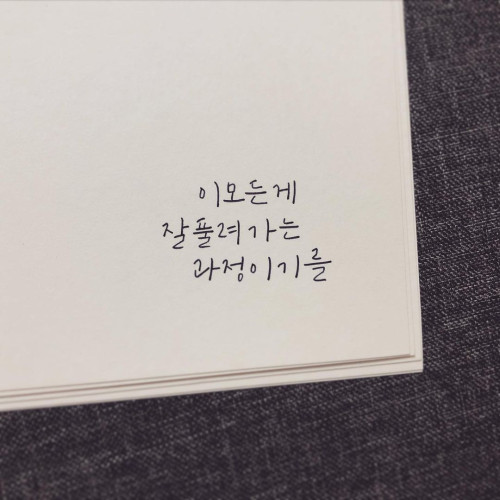 이모든게
잘풀려가는
과정이기를